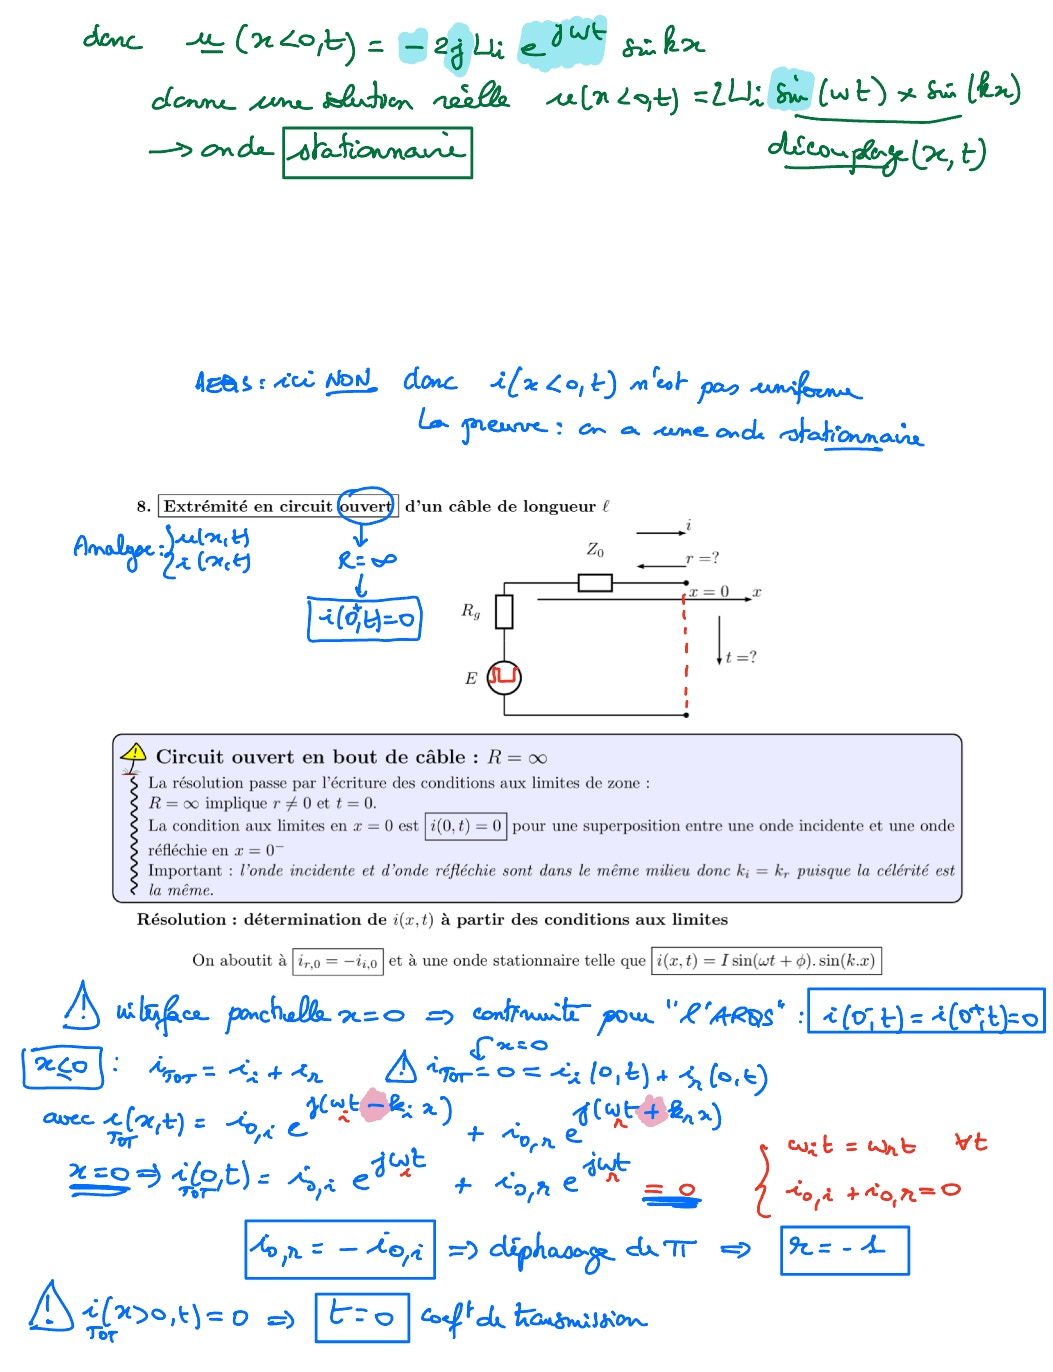 donc u (x<0,t) = - 2j Ui e^{jωt} sin kx
donne une solution réelle u(x<0,t) = 2Ui sin(ωt) × sin(kx)
→ onde stationnaire
découplage (x, t)
AEQS : ici NON donc i(x<0,t) n'est pas uniforme
La preuve : on a une onde stationnaire
8. Extrémité en circuit ouvert d'un câble de longueur ℓ
Analyse : { u(x,t)
i(x,t)
R = ∞
i(0⁺,t)=0
i
Z₀
r =?
x = 0
x
R_g
t =?
E
Circuit ouvert en bout de câble : R = ∞
La résolution passe par l'écriture des conditions aux limites de zone :
R = ∞ implique r ≠ 0 et t = 0.
La condition aux limites en x = 0 est i(0, t) = 0 pour une superposition entre une onde incidente et une onde
réfléchie en x = 0⁻
Important : l'onde incidente et d'onde réfléchie sont dans le même milieu donc k_i = k_r puisque la célérité est
la même.
Résolution : détermination de i(x, t) à partir des conditions aux limites
On aboutit à i_{r,0} = −i_{i,0} et à une onde stationnaire telle que i(x, t) = I sin(ωt + ϕ). sin(k.x)
⚠ interface ponctuelle x=0 ⇒ continuité pour "l'ARQS" : i(0⁻,t) = i(0⁺,t)=0
x≤0 : i_TOT = i_i + i_r ⚠ i_TOT = 0 = i_i (0,t) + i_r (0,t)
x=0
avec i_TOT(x,t) = i_{0,i} e^{j(ω_i t − k_i x)} + i_{0,r} e^{j(ω_r t + k_r x)}
x=0 ⇒ i_TOT(0,t) = i_{0,i} e^{jω_i t} + i_{0,r} e^{jω_r t} = 0
{ ω_i t = ω_r t ∀t
i_{0,i} + i_{0,r} = 0
i_{0,r} = − i_{0,i} ⇒ déphasage de π ⇒ r = −1
⚠ i_TOT(x>0,t) = 0 ⇒ t=0 coef^t de transmission